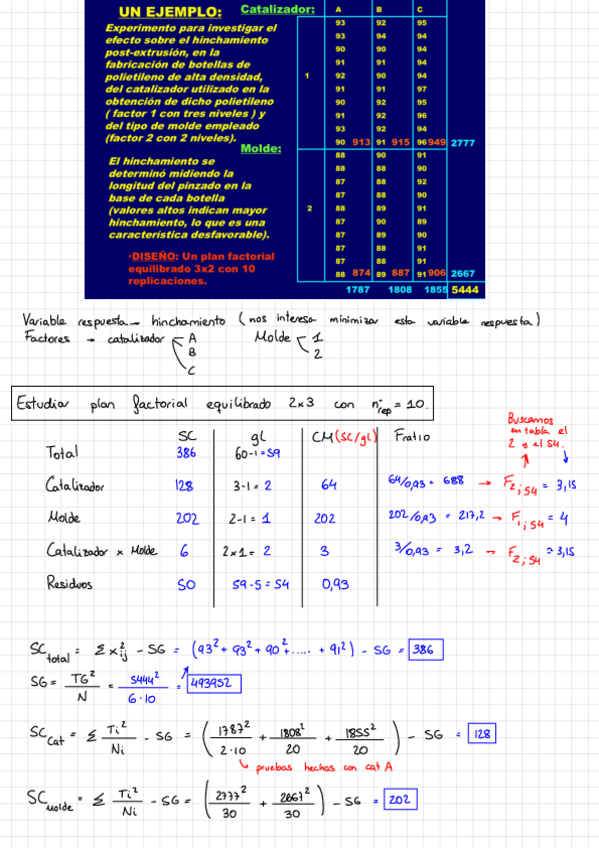 UN EJEMPLO:
Catalizador: A B C
Experimento para investigar el
efecto sobre el hinchamiento
post-extrusión, en la
fabricación de botellas de
polietileno de alta densidad,
del catalizador utilizado en la
obtención de dicho polietileno
( factor 1 con tres niveles ) y
del tipo de molde empleado
(factor 2 con 2 niveles).
Molde:
El hinchamiento se
determinó midiendo la
longitud del pinzado en la
base de cada botella
(valores altos indican mayor
hinchamiento, lo que es una
característica desfavorable).
•DISEÑO: Un plan factorial
equilibrado 3x2 con 10
replicaciones.
93 92 95
93 94 94
90 90 94
91 91 94
1 92 90 94
91 91 97
90 92 95
91 92 96
93 92 94
90 913 91 915 96 949 2777
88 90 91
88 88 90
87 88 92
87 88 90
2 88 89 91
87 90 89
87 89 90
87 88 91
87 88 91
88 874 89 887 91 906 2667
1787 1808 1855 5444
Variable respuesta → hinchamiento ( nos interesa minimizar esta variable respuesta )
Factores → catalizador A B C Molde 1 2
Estudiar plan factorial equilibrado 2x3 con nº rep = 10.
Buscamos
en tabla el
2 y el 54.
SC gL CM (SC/gL) Fratio
Total 386 60-1 = 59
Catalizador 128 3-1 = 2 64 64/0,93 = 688 → F2;54 = 3,15
Molde 202 2-1 = 1 202 202/0,93 = 217,2 → F1;54 = 4
Catalizador x Molde 6 2x1 = 2 3 3/0,93 = 3,2 → F2;54 = 3,15
Residuos 50 59-5 = 54 0,93
SC total = Σ x²ij - SG = (93² + 93² + 90² + ..... + 91²) - SG = 386
SG = TG²/N = 5444²/6·10 = 493952
SC Cat = Σ Ti²/Ni - SG = (1787²/2·10 + 1808²/20 + 1855²/20) - SG = 128
pruebas hechas con cat A
SC Molde = Σ Ti²/Ni - SG = (2777²/30 + 2667²/30) - SG = 202